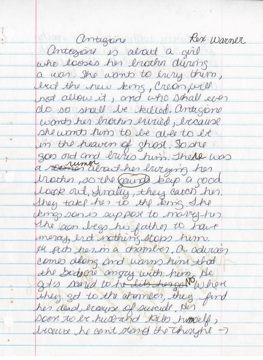 Antigone Rex Warner
Antigone is about a girl
who looses her brother during
a war. She wants to bury him,
but the new king, Creon, will
not allow it, and who shall ever
do so shall be killed. Antigone
wants her brother buried, because
she wants him to be able to be
in the heaven of ghost. So she
goes out and buries him. There was
a rumor about her burying her
brother, so the guards keep a good
look out, finally, they catch her.
They take her to the king. She
king son is suppose to marry her.
The son begs his father to have
mercy, but nothing stops him.
He puts her in a chamber. A
comes along and warns him that
the angry with him. He
gets scared to No When
they get to the chamber, they find
her dead, because of suicide. Her
soon to be husband kills himself,
because he cant stand the thought →